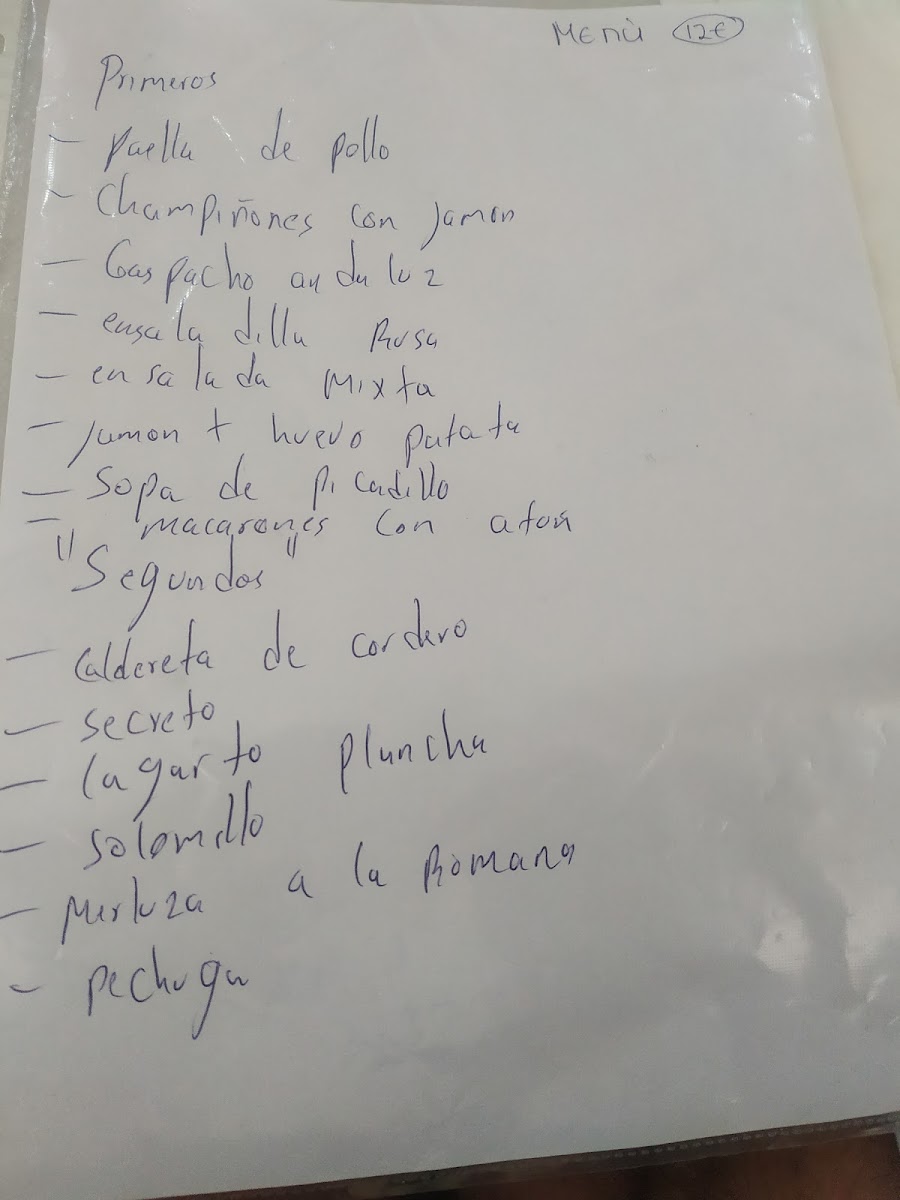 Menú 12€
Primeros
- Paella de pollo
- Champiñones con jamon
- Gaspacho andaluz
- ensaladilla Rusa
- ensalada Mixta
- jamon + huevo patata
- Sopa de picadillo
- macarones con aton
"Segundos"
- Caldereta de cordero
- secreto
- lagarto plancha
- solomillo
- Merluza a la Romana
- pechuga